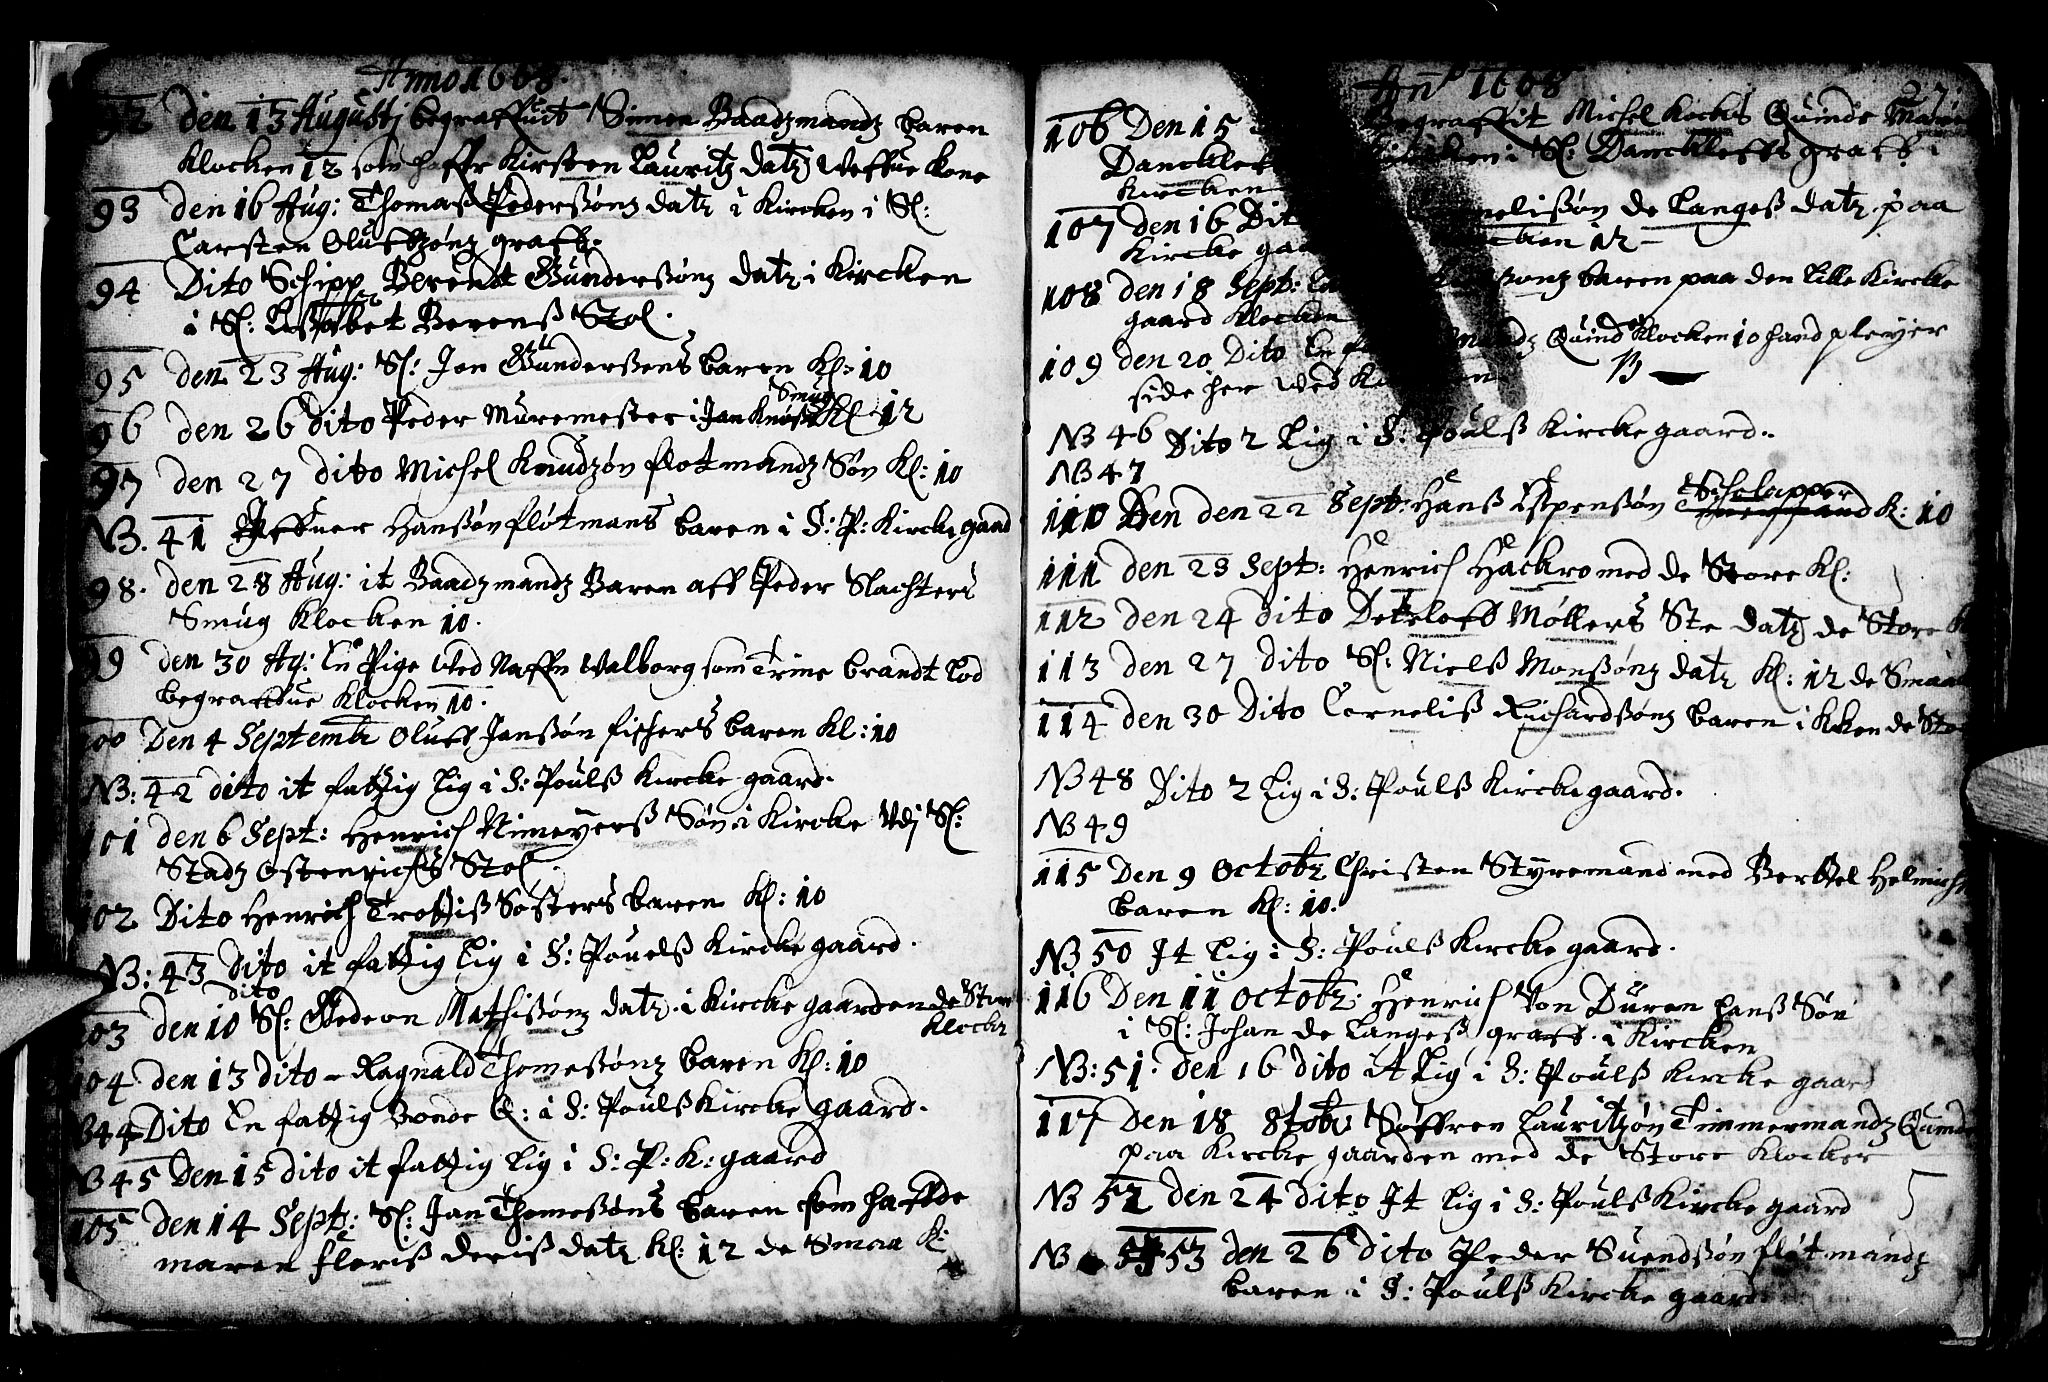 Anno 1668.
92 den 13 Augustj begraffuit Simen Baadzmandz baren
Klocken 12 som haffr Kirsten Lauritz datz Weffue Kone
93 den 16 Aug: Thomas Pederssønz datz i Kircken i Sl:
Carsten Oluffzønz graff.
94 Dito Schipp Berendt Gunderssønz datz i Kircken
i Sl: Lissabet Berenß Stol.
95 den 23 Aug: Sl: Jon Gunderssens baren Kl: 10
96 den 26 dito Peder Muremester i Jan Knuß Smug Kl 12
97 den 27 dito Michel Knudzøn flotmandz Søn Kl: 10
NB. 41 Jffuer Hanssøn fløtmans baren i S: P: Kircke gaard
98. den 28 Aug: it Baadzmandz Baren aff Peder Slachters
Smug Klocken 10.
99 den 30 Ag: En Pige Wed Naffn Walborg som Trine brandt lod
begraffue Klocken 10.
100 Den 4 Septembr Oluff Janssøn fischers baren Kl: 10
NB: 42 dito it fattig lig i S: Poulß Kircke gaard.
101 den 6 Sept: Henrich Nimeyerß Søn i Kircke Vdj Sl:
Stadz Ostenrichs Stol.
102 Dito Henrich Trottiß Søsters baren Kl: 10
NB: 43 dito it fattig lig i S: Pouelß Kircke gaard.
103 den 10 dito Sl: Gedeon Mathissønz datz i Kircke gaarden de Store
Klocker
104 den 13 dito Ragnald Thomessønz baren Kl: 10
NB 44 Dito En fattig Bonde Q: i S: Poulß Kircke gaard.
NB 45 Den 15 dito it fattig lig i S: P: K: gaard
105 den 14 Sept: Sl: Jan Thomessøns baren som haffde
maren floriß deriß datz Kl: 12 de Smaa K:
Anno 1668
27.
106 Den 15 begraffit Michel Kocks Quinde Maren
Danckler i Sl: Danckleffs graff i
Kircken
107 den 16 Dit nelissøn de Langeß datz paa
Kircke gaa Klocken 12
108 den 18 Sept: sønz baren paa den Lille Kircke
gaard Klocken
109 den 20 Dito En mandz Quind Klocken 10 hand pleyer
side her wed K
NB 46 Dito 2 Lig i S: Poulß Kircke gaard.
NB 47
110 Den den 22 Sept: Hanß Espenssøn Schlapper K: 10
111 den 23 Sept: Henrich Hackro med de Store Kl:
112 den 24 dito Deteleff Møllers Ste datz de Store K
113 den 27 dito Sl: Nielß Monssønz datz Kl: 12 de Smaa
114 den 30 Dito Corneliß Richardssønz baren i Kken de Sto
NB 48 Dito 2 Lig i S: Poulß Kircke gaard.
NB 49
115 Den 9 Octobr Christen Styremand med Berttel Helmichs
baren Kl: 10.
NB 50 It Lig i S: Poulß Kircke gaard.
116 Den 11 Octobr: Henrich Von Duren Hanß Søn
i Sl: Johan de Langeß graff i Kircken
NB: 51. den 16 dito it Lig i S: Poulß Kircke gaard
117 den 18 8tobr Søffren Lauritzøn Timmermandz Quinde
paa Kircke gaarden med de Store Klocker
NB 52 den 24 dito It Lig i S: Poulß Kircke gaard
NB 53 den 26 dito Peder Suendssøn fløtmandz
baren i S: Poulß Kircke gaard.